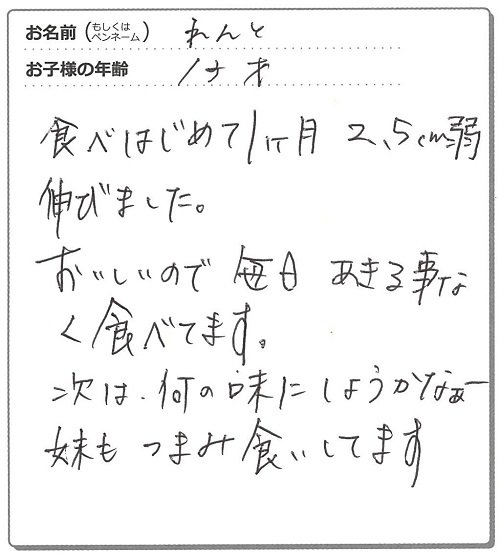 お名前（もしくはペンネーム） れんと
お子様の年齢 14才
食べはじめて1ヶ月 2.5cm弱
伸びました。
おいしいので 毎日 あきる事な
く食べてます。
次は、何の味にしようかなぁー
妹も つまみ食いしてます